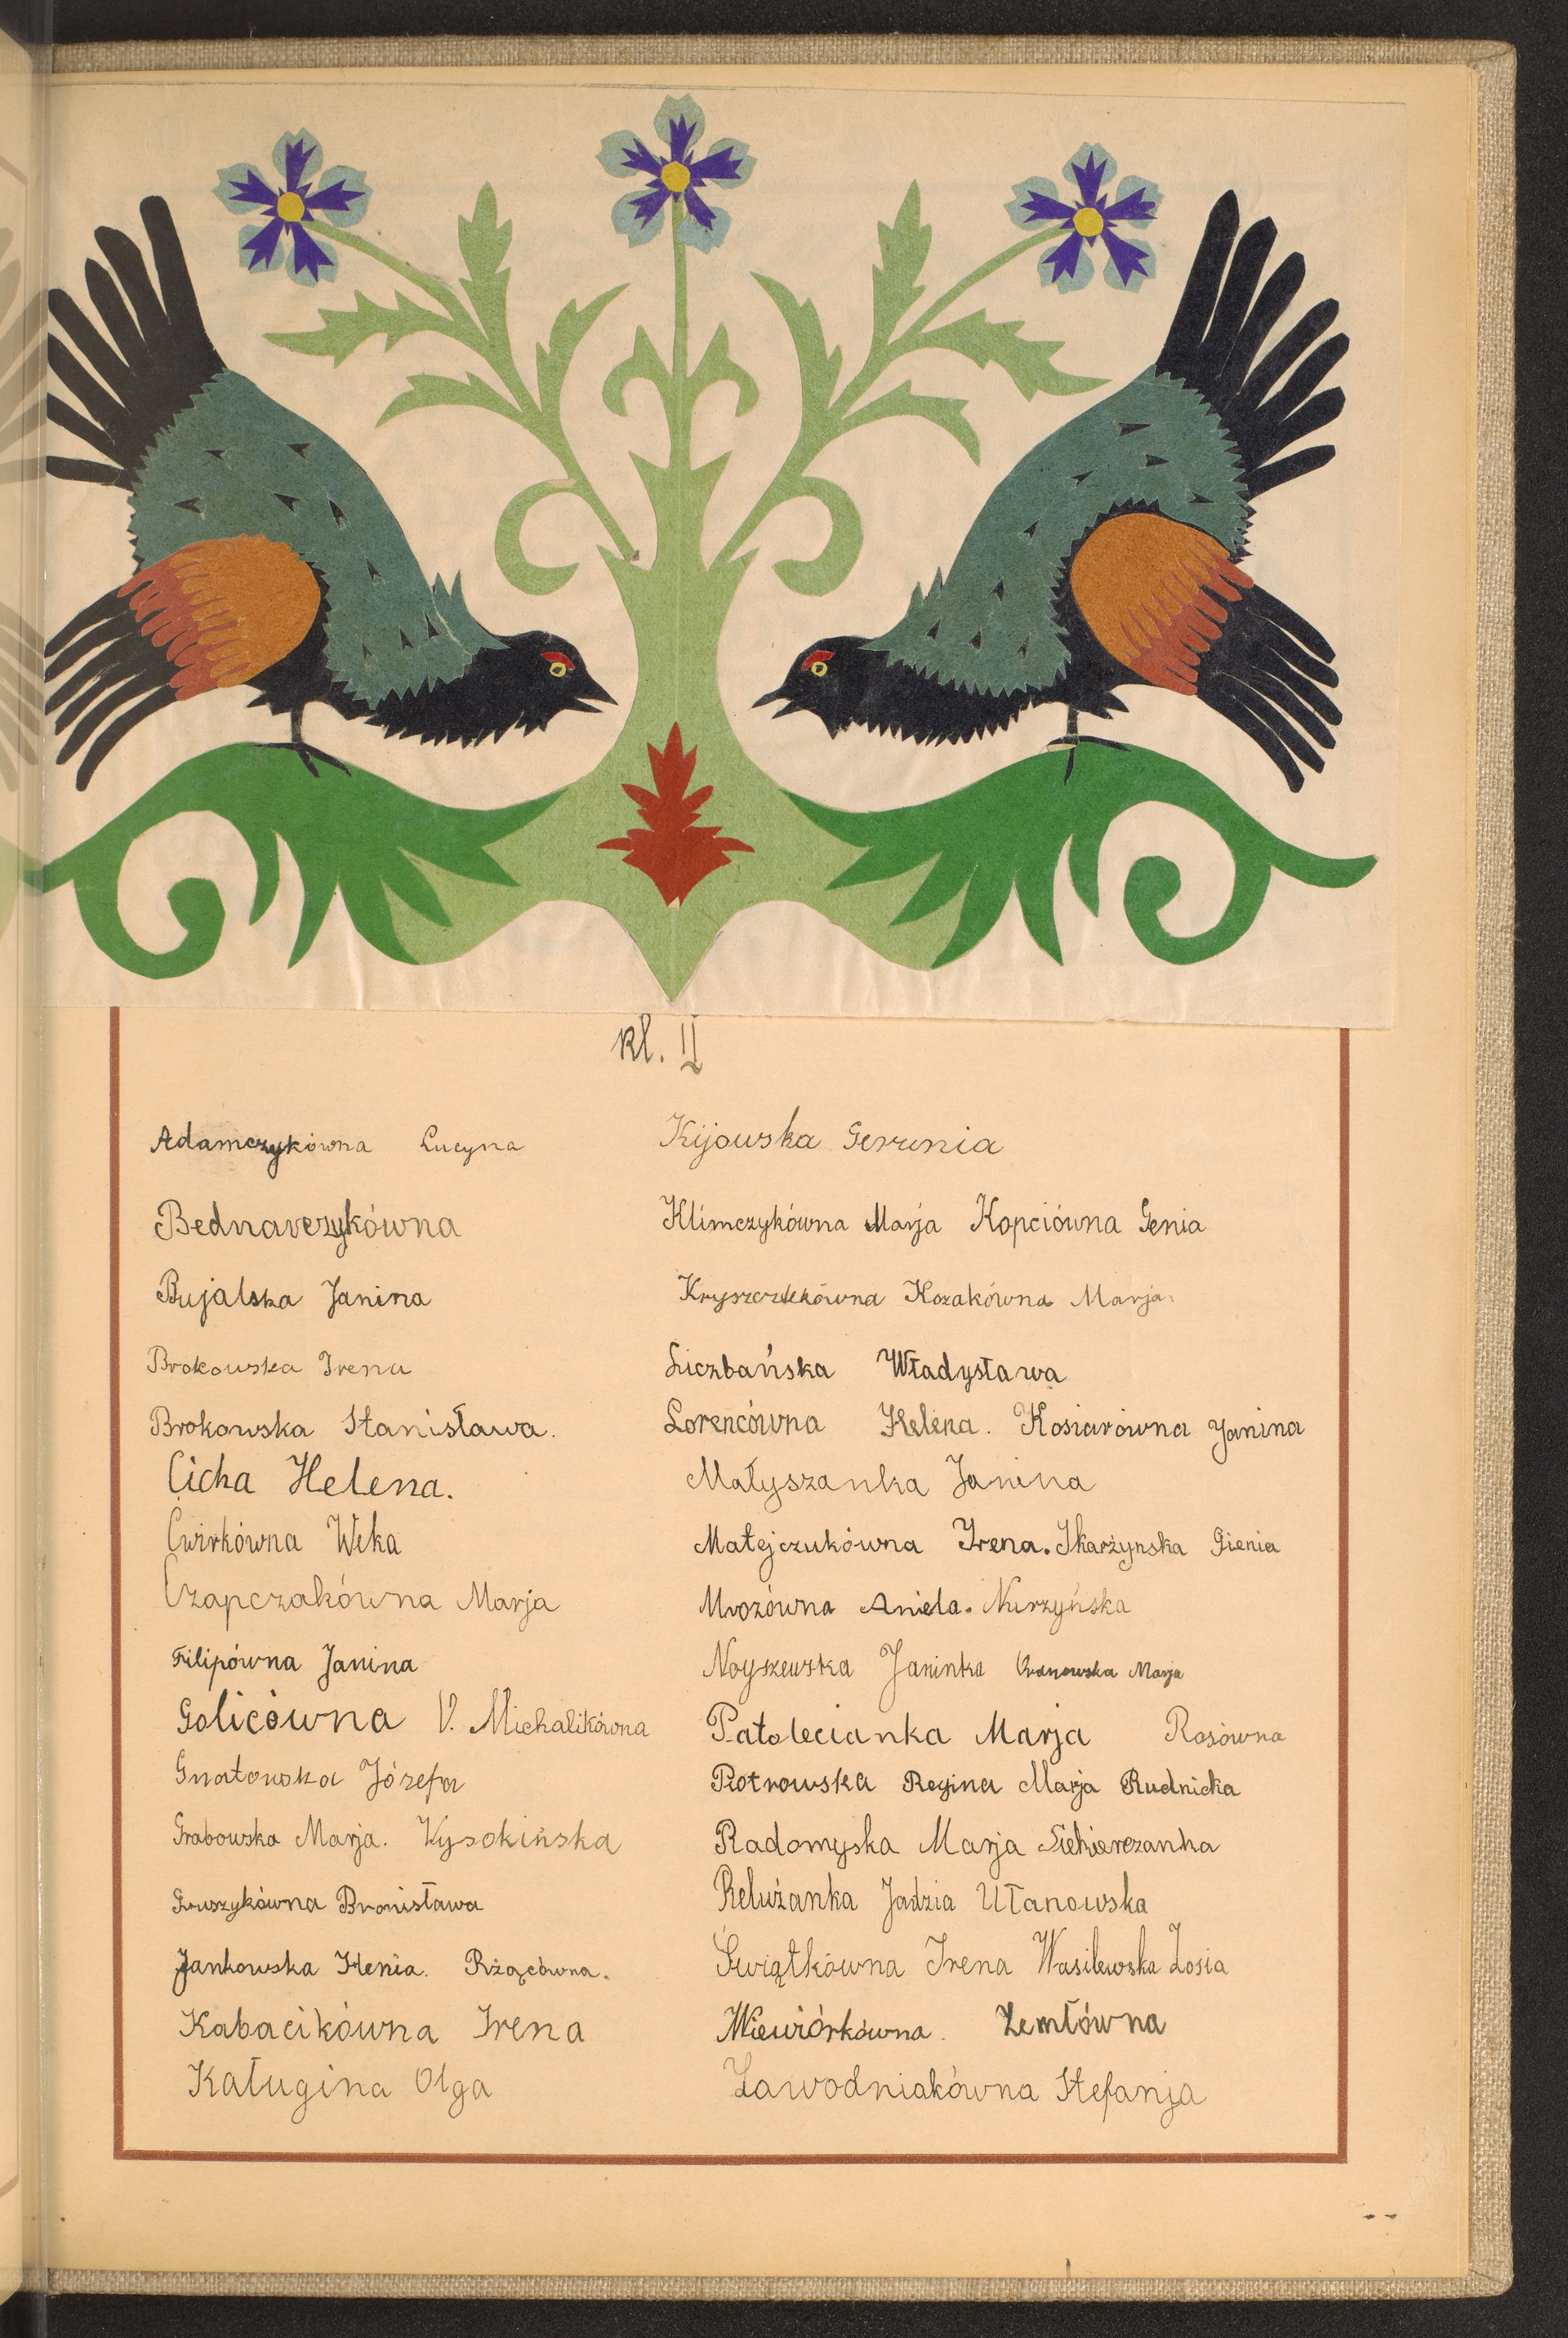 kl. II
Adamczykówna Lucyna
Bednarczykówna
Bujalska Janina
Brokowska Irena
Brokowska Stanisława.
Cicha Helena.
Ćwirkówna Weka
Czapczakówna Marja
Filipówna Janina
Golicówna V. Michalikówna
Gnatowska Józefa
Grabowska Marja. Wysokińska
Gruszykówna Bronisława
Jankowska Henia. Rżącówna.
Kabacikówna Irena
Kaługina Olga
Kijowska
Klimczykówna Marja Kopciówna Genia
Kozakówna Marja.
Liczbańska Władysława
Lorencówna Helena. Kosiarówna Janina
Małyszanka Janina
Matejczukówna Irena. Skarżynska Gienia
Mrozówna Aniela. Nurzyńska
Noyszewska Janinka Marja
Patolecianka Marja Rosówna
Piotrowska Regina Marja Rudnicka
Radomyska Marja Siekierczanka
Relużanka Jadzia Ułanowska
Świątkówna Irena Wasilewska Zosia
Wiewiórkówna. Zemłówna
Zawodniakówna Stefanja